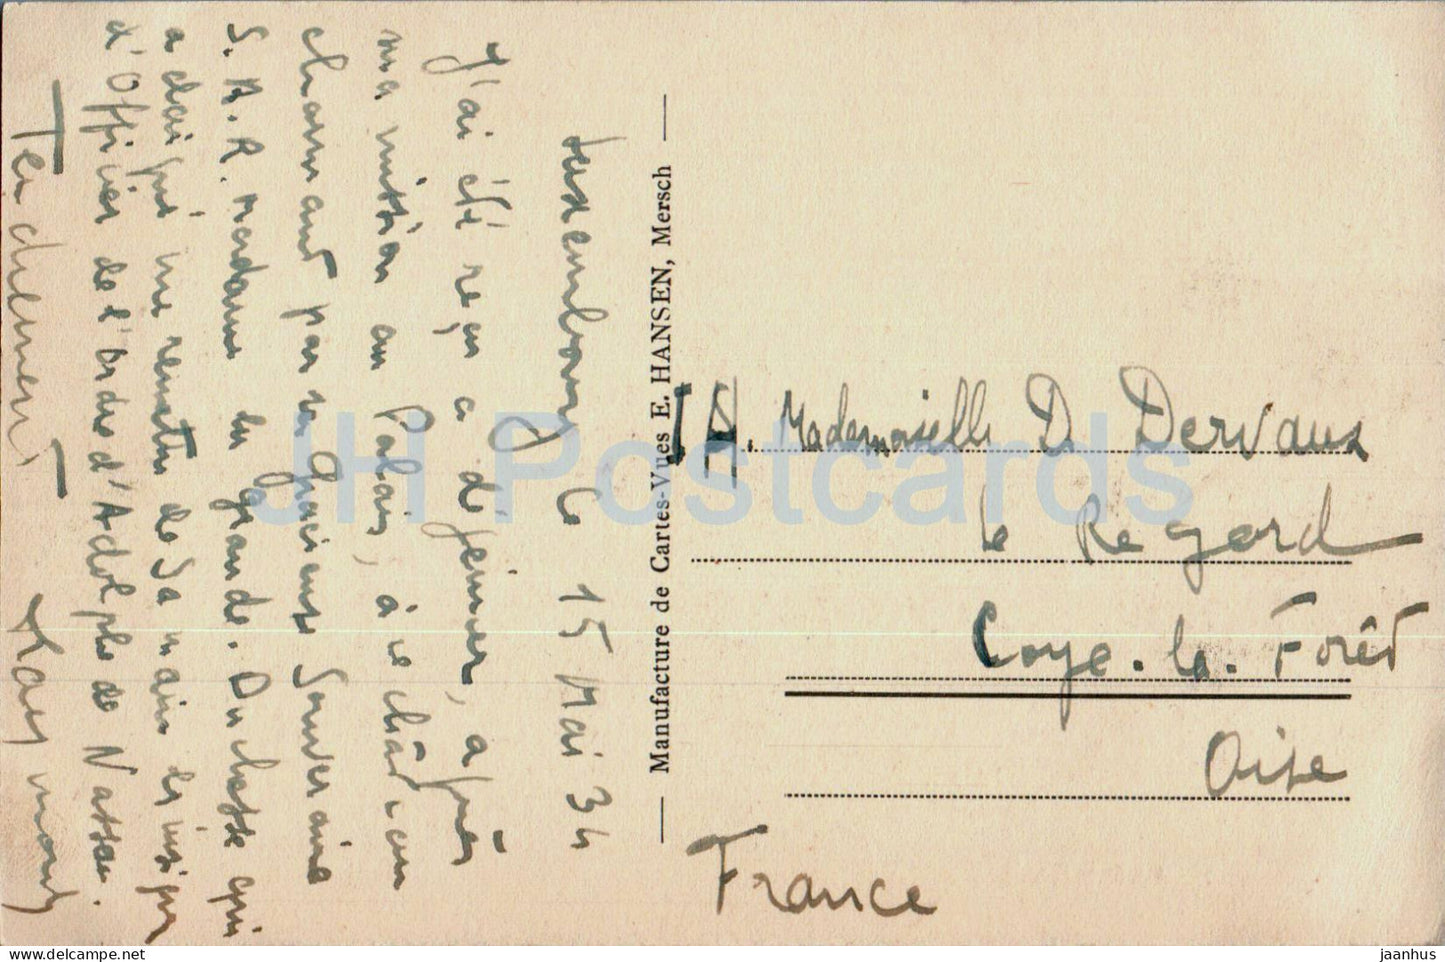 Luxembourg le 15 Mai 34
J'ai été reçu à déjeuner, après
ma mission au Palais, à ce château
charmant par sa Gracieuse Souveraine
S. A. R. Madame la Grande-Duchesse qui
a daigné me remettre de Sa main les insignes
d'Officier de l'Ordre d'Adolphe de Nassau.
Tendrement
Raymond
Manufacture de Cartes-Vues E. HANSEN, Mersch
Mademoiselle D. Dervaux
le Regard
Coye-la-Forêt
Oise
France
JH Postcards
jaanhus